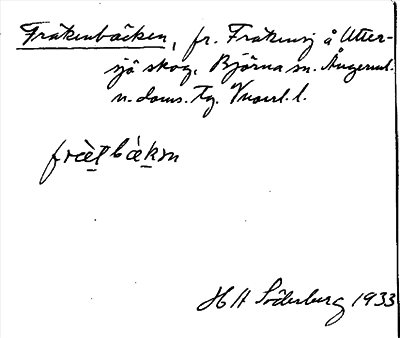 Fräkenbäcken, fr. Fräkensj å Utter-
sjö skog, Björna sn. Ångerml.
n. doms. Tg.
fræ̀tbæ̀kən
H H Söderberg 1933